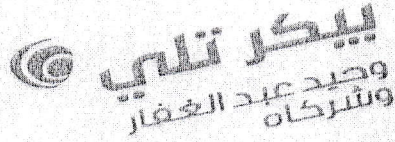 بيكر تلي
وحيد عبد الغفار
وشركاه